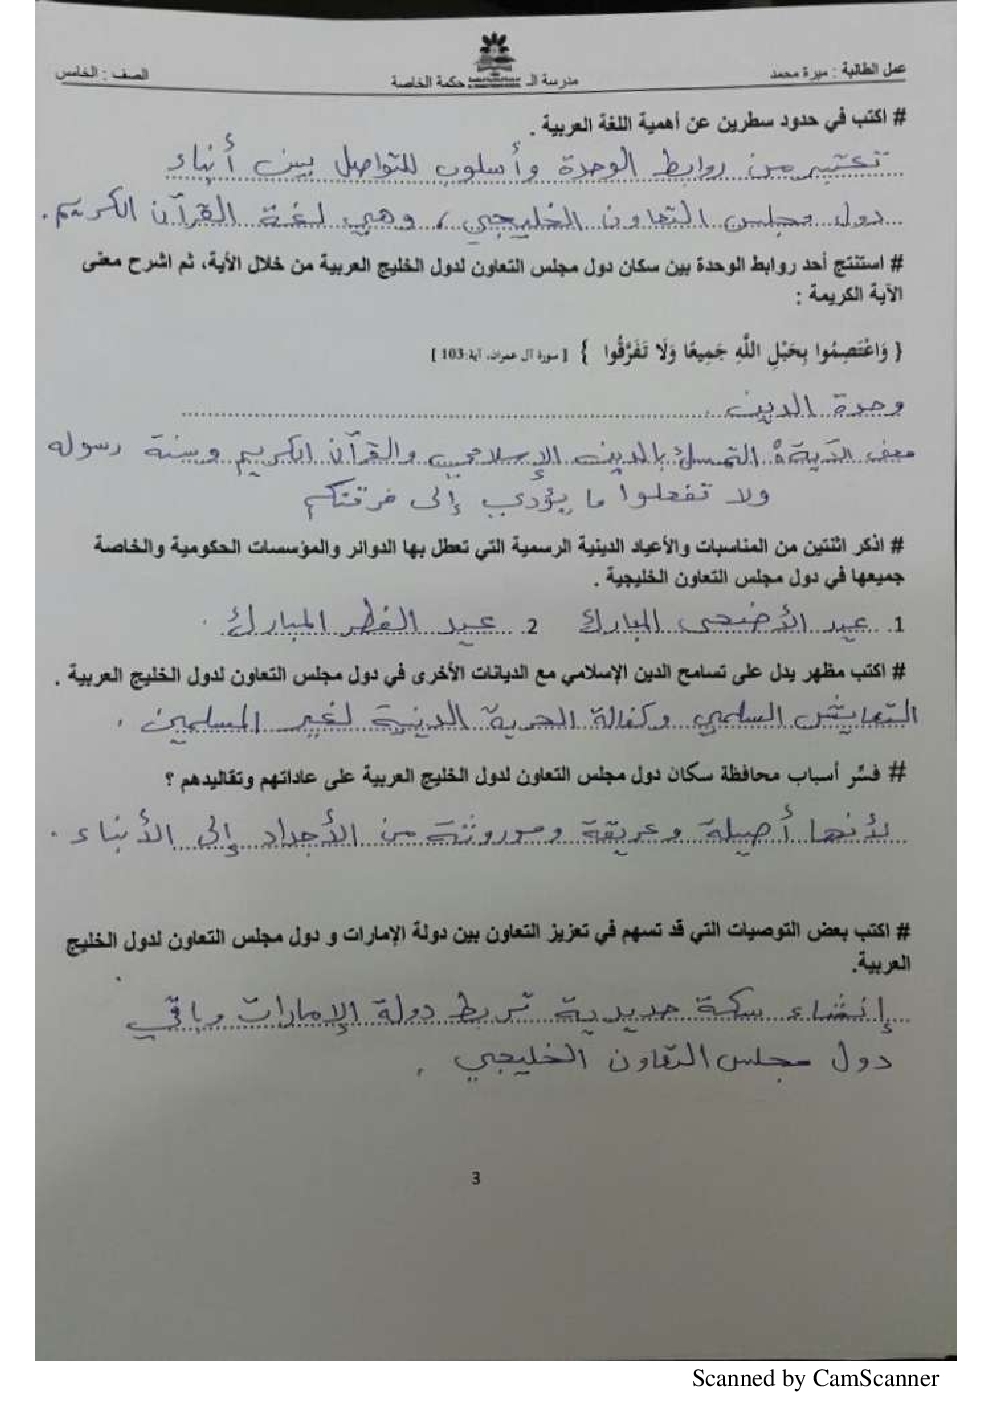 عمل الطالبة : ميرة محمد
مدرسة الـ حكمة الخاصة
الصف : الخامس
# اكتب في حدود سطرين عن أهمية اللغة العربية .
تعتبر من روابط الوحدة وأسلوب للتواصل بين أبناء
دول مجلس التعاون الخليجي ، وهي لغة القرآن الكريم .
# استنتج أحد روابط الوحدة بين سكان دول مجلس التعاون لدول الخليج العربية من خلال الأية، ثم اشرح معنى
الآية الكريمة :
{ وَاعْتَصِمُوا بِحَبْلِ اللَّهِ جَمِيعًا وَلَا تَفَرَّقُوا } [ سورة آل عمران، آية:103 ]
وحدة الدين .
معنى الآية التمسك بالدين الإسلامي والقرآن الكريم وسنة رسوله
ولا تفعلوا ما يؤدي إلى فرقتكم
# اذكر اثنتين من المناسبات والأعياد الدينية الرسمية التي تعطل بها الدوائر والمؤسسات الحكومية والخاصة
جميعها في دول مجلس التعاون الخليجية .
1. عيد الأضحى المبارك 2. عيد الفطر المبارك .
# اكتب مظهر يدل على تسامح الدين الإسلامي مع الديانات الأخرى في دول مجلس التعاون لدول الخليج العربية .
التعايش السلمي وكفالة الحرية الدينية لغير المسلمين .
# فسِّر أسباب محافظة سكان دول مجلس التعاون لدول الخليج العربية على عاداتهم وتقاليدهم ؟
لأنها أصيلة وعريقة وموروثة من الأجداد إلى الأبناء .
# اكتب بعض التوصيات التي قد تسهم في تعزيز التعاون بين دولة الإمارات و دول مجلس التعاون لدول الخليج
العربية.
إنشاء سكة حديدية تربط دولة الإمارات وباقي
دول مجلس التعاون الخليجي .
3
Scanned by CamScanner